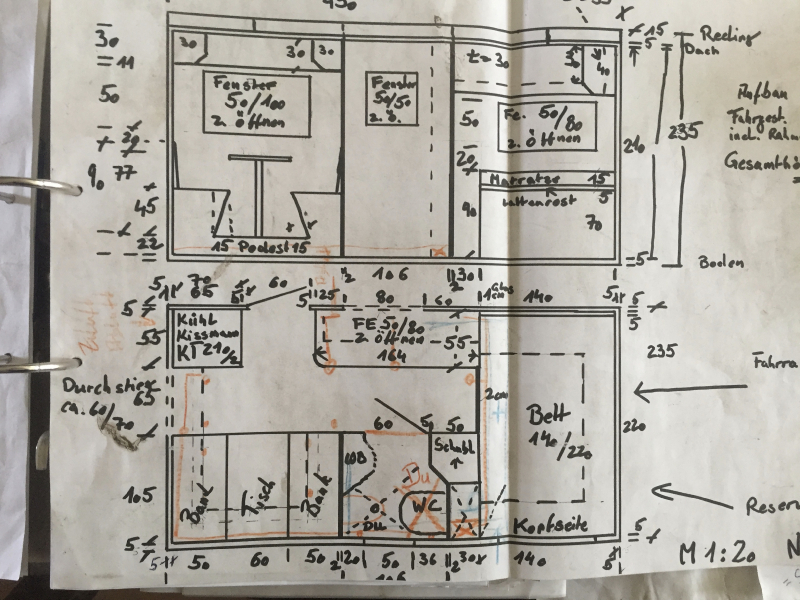 430
30
= 11
50
77
90
45
22
30
30
30
Fenster
50/100
z. öffnen
Fenster
50/50
z. ö.
t = 30
40
50
Fe. 50/80
z. öffnen
20
Matratze 15
Lattenrost
5
90
70
15 Podest 15
15
5
Reeling
Dach
210
235
Aufbau
Fahrgest.
incl. Rahm
Gesamthö
5
Boden
2
106
2
30
70
65
60
5
25
80
60
140
5
5
55
Kühl
Kissmann
KT 210/2
FE 50/80
z. öffnen
164
55
Durchstieg
ca. 60/70
65
2cm
Bett
140/220
235
220
Fahrra
60
5
50
Schubl.
WB
Du
105
Bank
Tisch
Bank
DU
WC
Kopfseite
Reserv
5
5
50
60
50
2
20
50
36
2
30
140
5
106
M 1:20